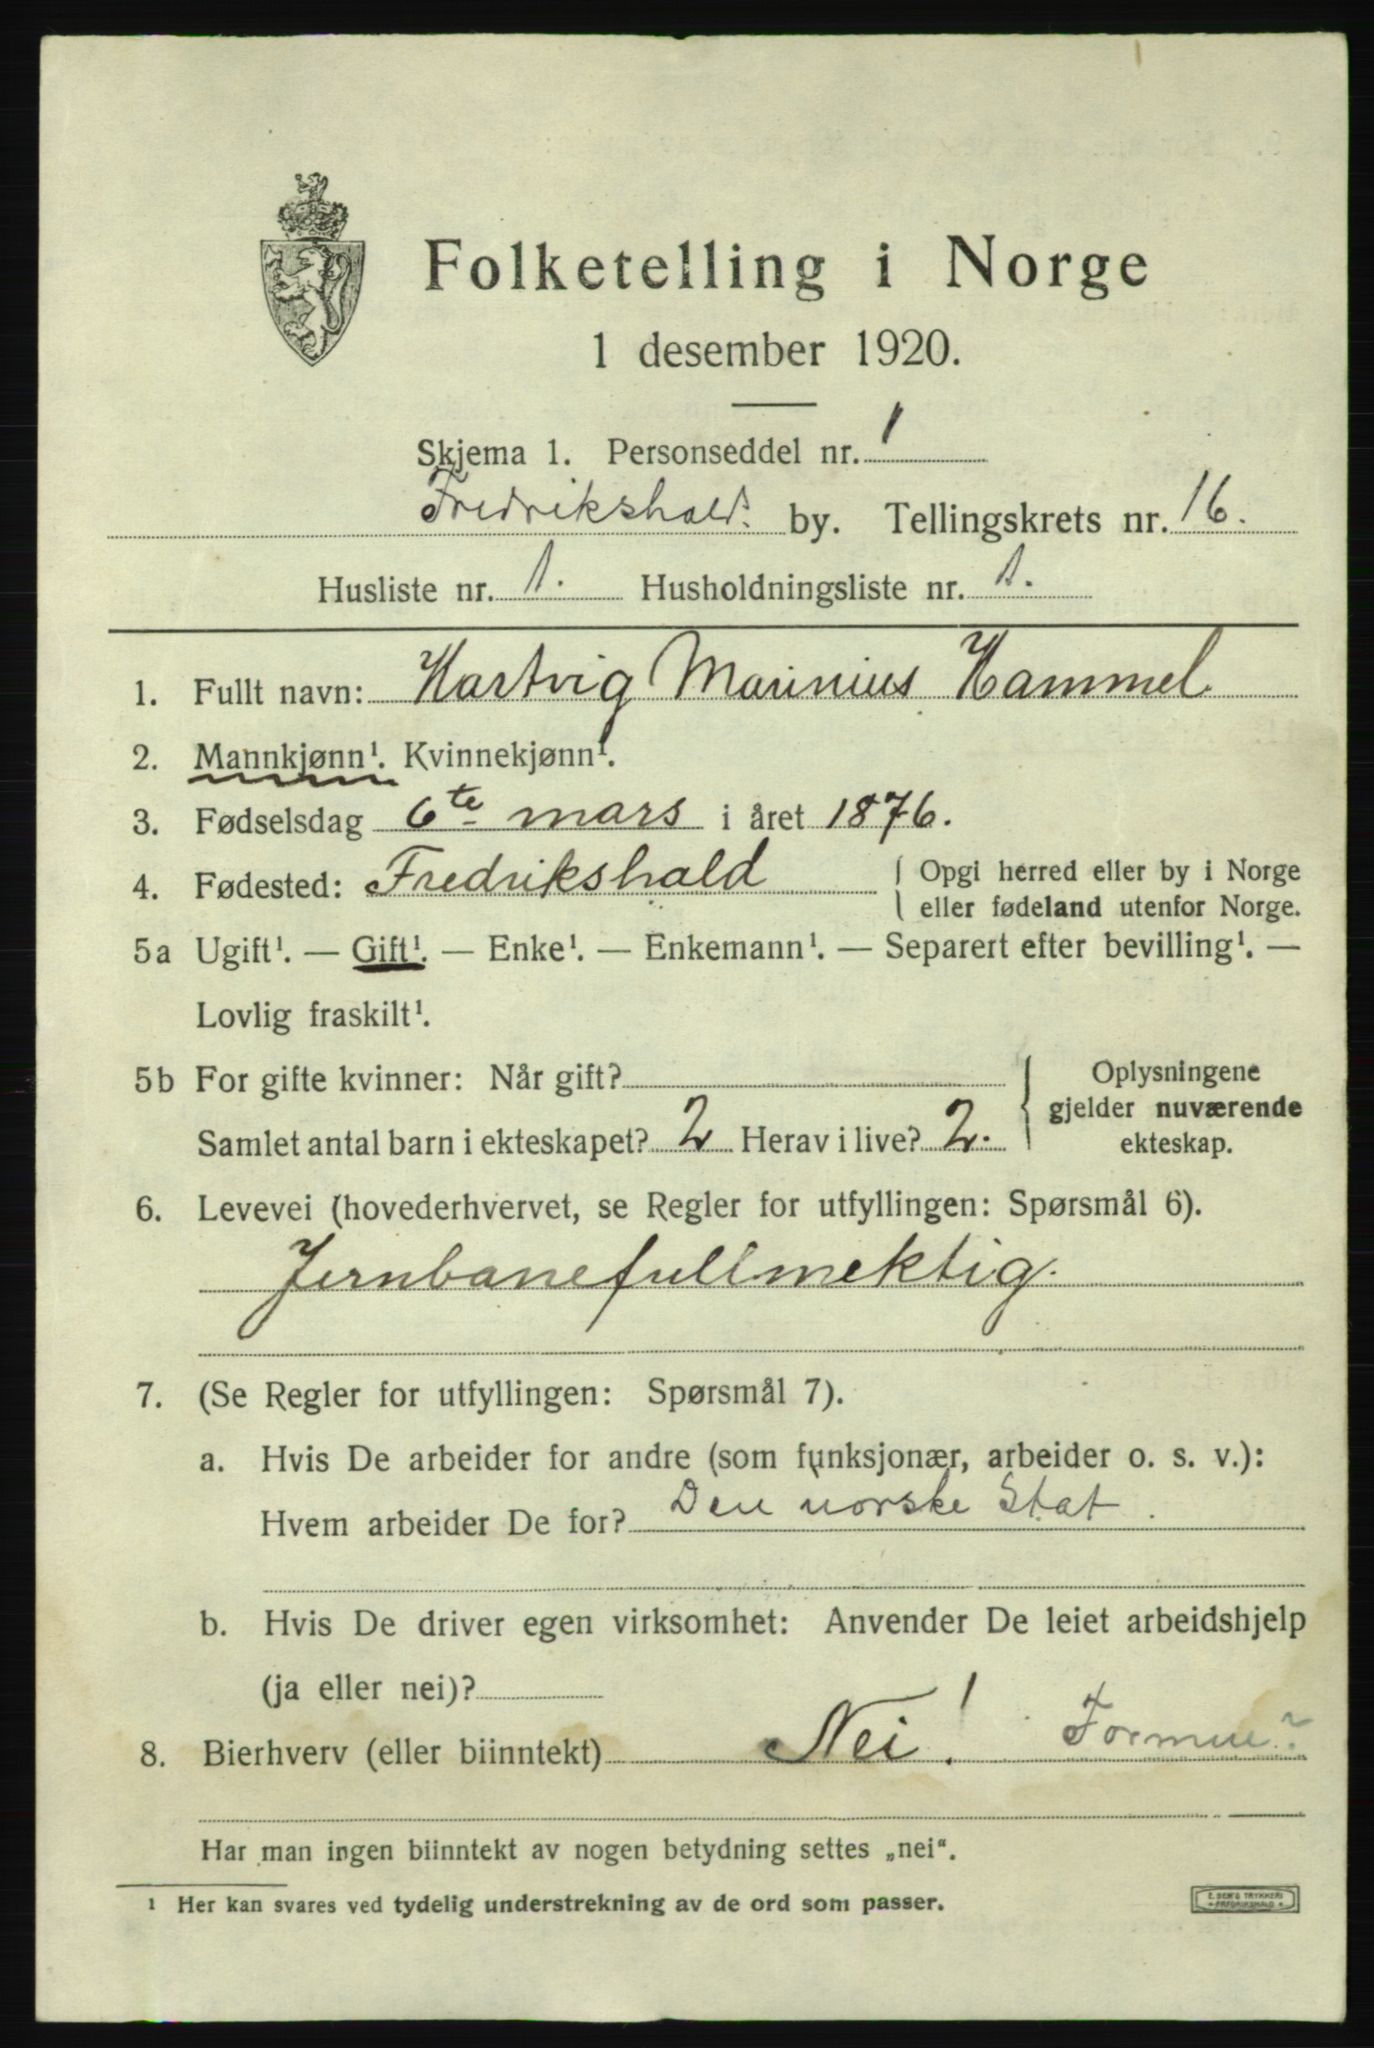 Folketelling i Norge
1 desember 1920.
Skjema 1. Personseddel nr. 1
Fredrikshald. by. Tellingskrets nr. 16.
Husliste nr. 1. Husholdningsliste nr. 1.
1. Fullt navn: Hartvig Marinius Hammel
2. Mannkjønn¹. Kvinnekjønn¹.
3. Fødselsdag 6te mars i året 1876.
4. Fødested: Fredrikshald { Opgi herred eller by i Norge
eller fødeland utenfor Norge.
5a Ugift¹. — Gift¹. — Enke¹. — Enkemann¹. — Separert efter bevilling¹. —
Lovlig fraskilt¹.
5b For gifte kvinner: Når gift? { Oplysningene
gjelder nuværende
Samlet antal barn i ekteskapet? 2 Herav i live? 2. ekteskap.
6. Levevei (hovederhvervet, se Regler for utfyllingen: Spørsmål 6).
Jernbanefullmektig.
7. (Se Regler for utfyllingen: Spørsmål 7).
a. Hvis De arbeider for andre (som funksjonær, arbeider o. s. v.):
Hvem arbeider De for? Den norske Stat.
b. Hvis De driver egen virksomhet: Anvender De leiet arbeidshjelp
(ja eller nei)?
8. Bierhverv (eller biinntekt) Nei! Formue?
Har man ingen biinntekt av nogen betydning settes „nei“.
¹ Her kan svares ved tydelig understrekning av de ord som passer.
TRYKKERI
FREDRIKSHALD